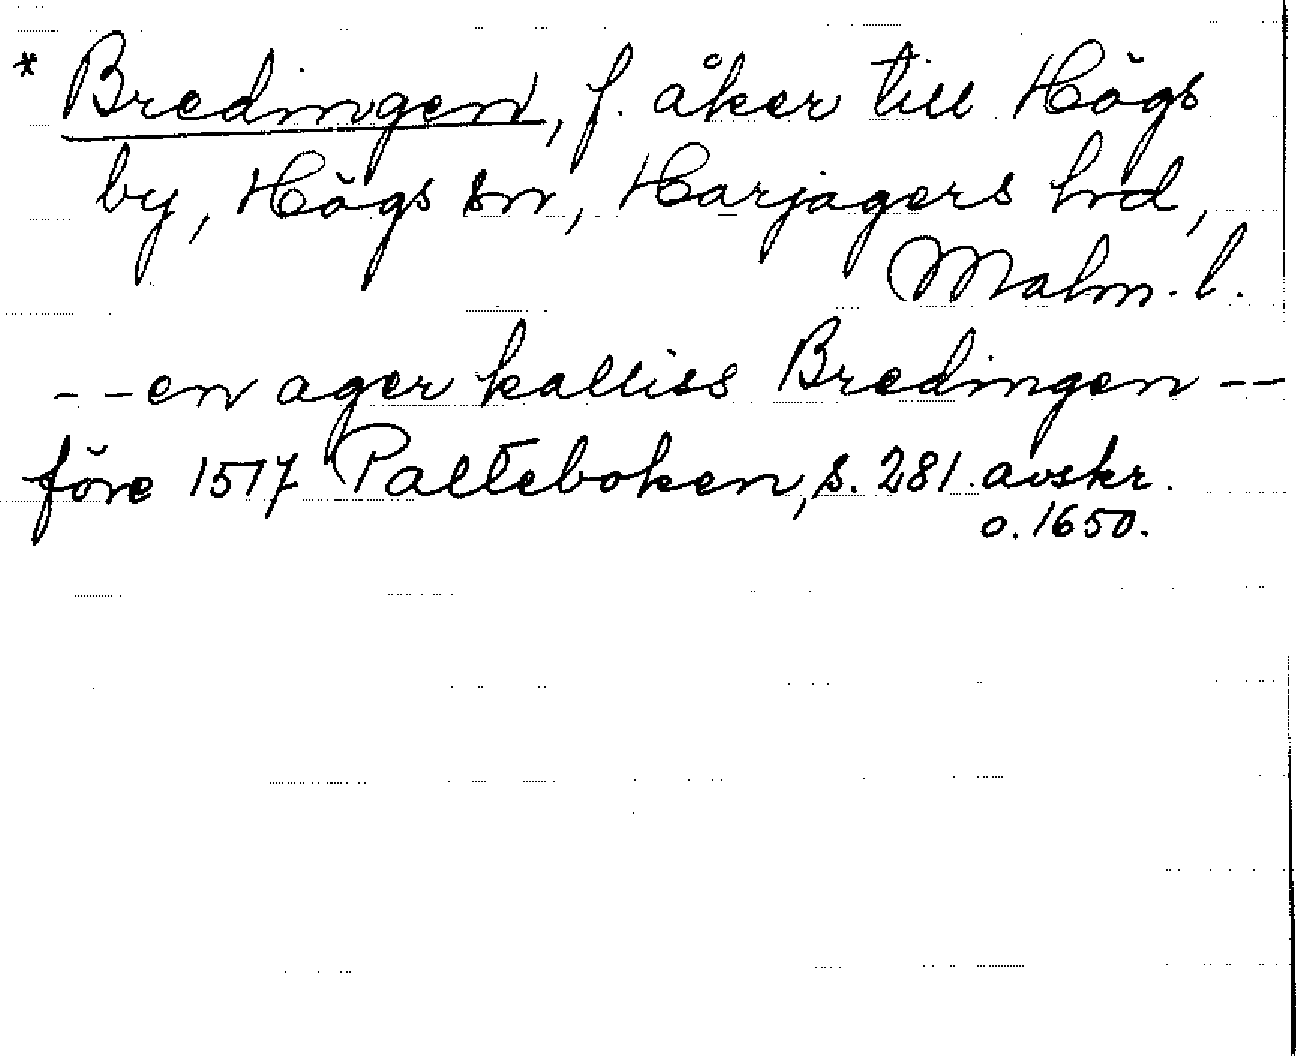 * Bredingen, f. åker till Högs
by, Högs sn, Harjagers hd,
Malm. l.
-- en ager kalliss Bredingen --
före 1517 Palteboken, s. 281. avskr.
o. 1650.